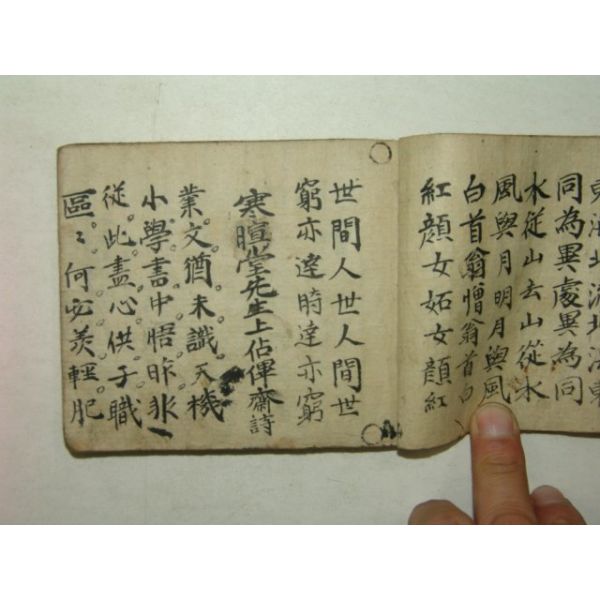 東海北流北海東
同為異處異為同
水從山去山從水
風與月明月與風
白首翁憎翁首白
紅顔女妬女顔紅
世間人世人間世
窮亦達時達亦窮
寒暄堂先生上佔俾齋詩
業文猶未識天機
小學書中悟昨非
從此盡心供子職
區〻何必羨輕肥